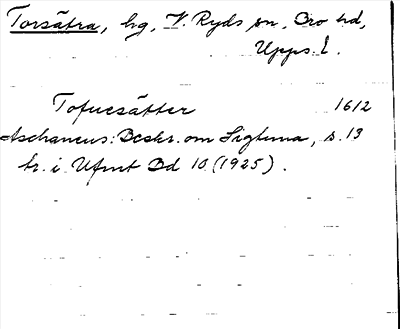 Torsätra, hg, V. Ryds sn, Bro hd,
Upps. l.
Tofuesätter 1612
Aschaneus: Beskr. om Sigtuna, s. 13
tr. i Ufmt Bd 10 (1925).